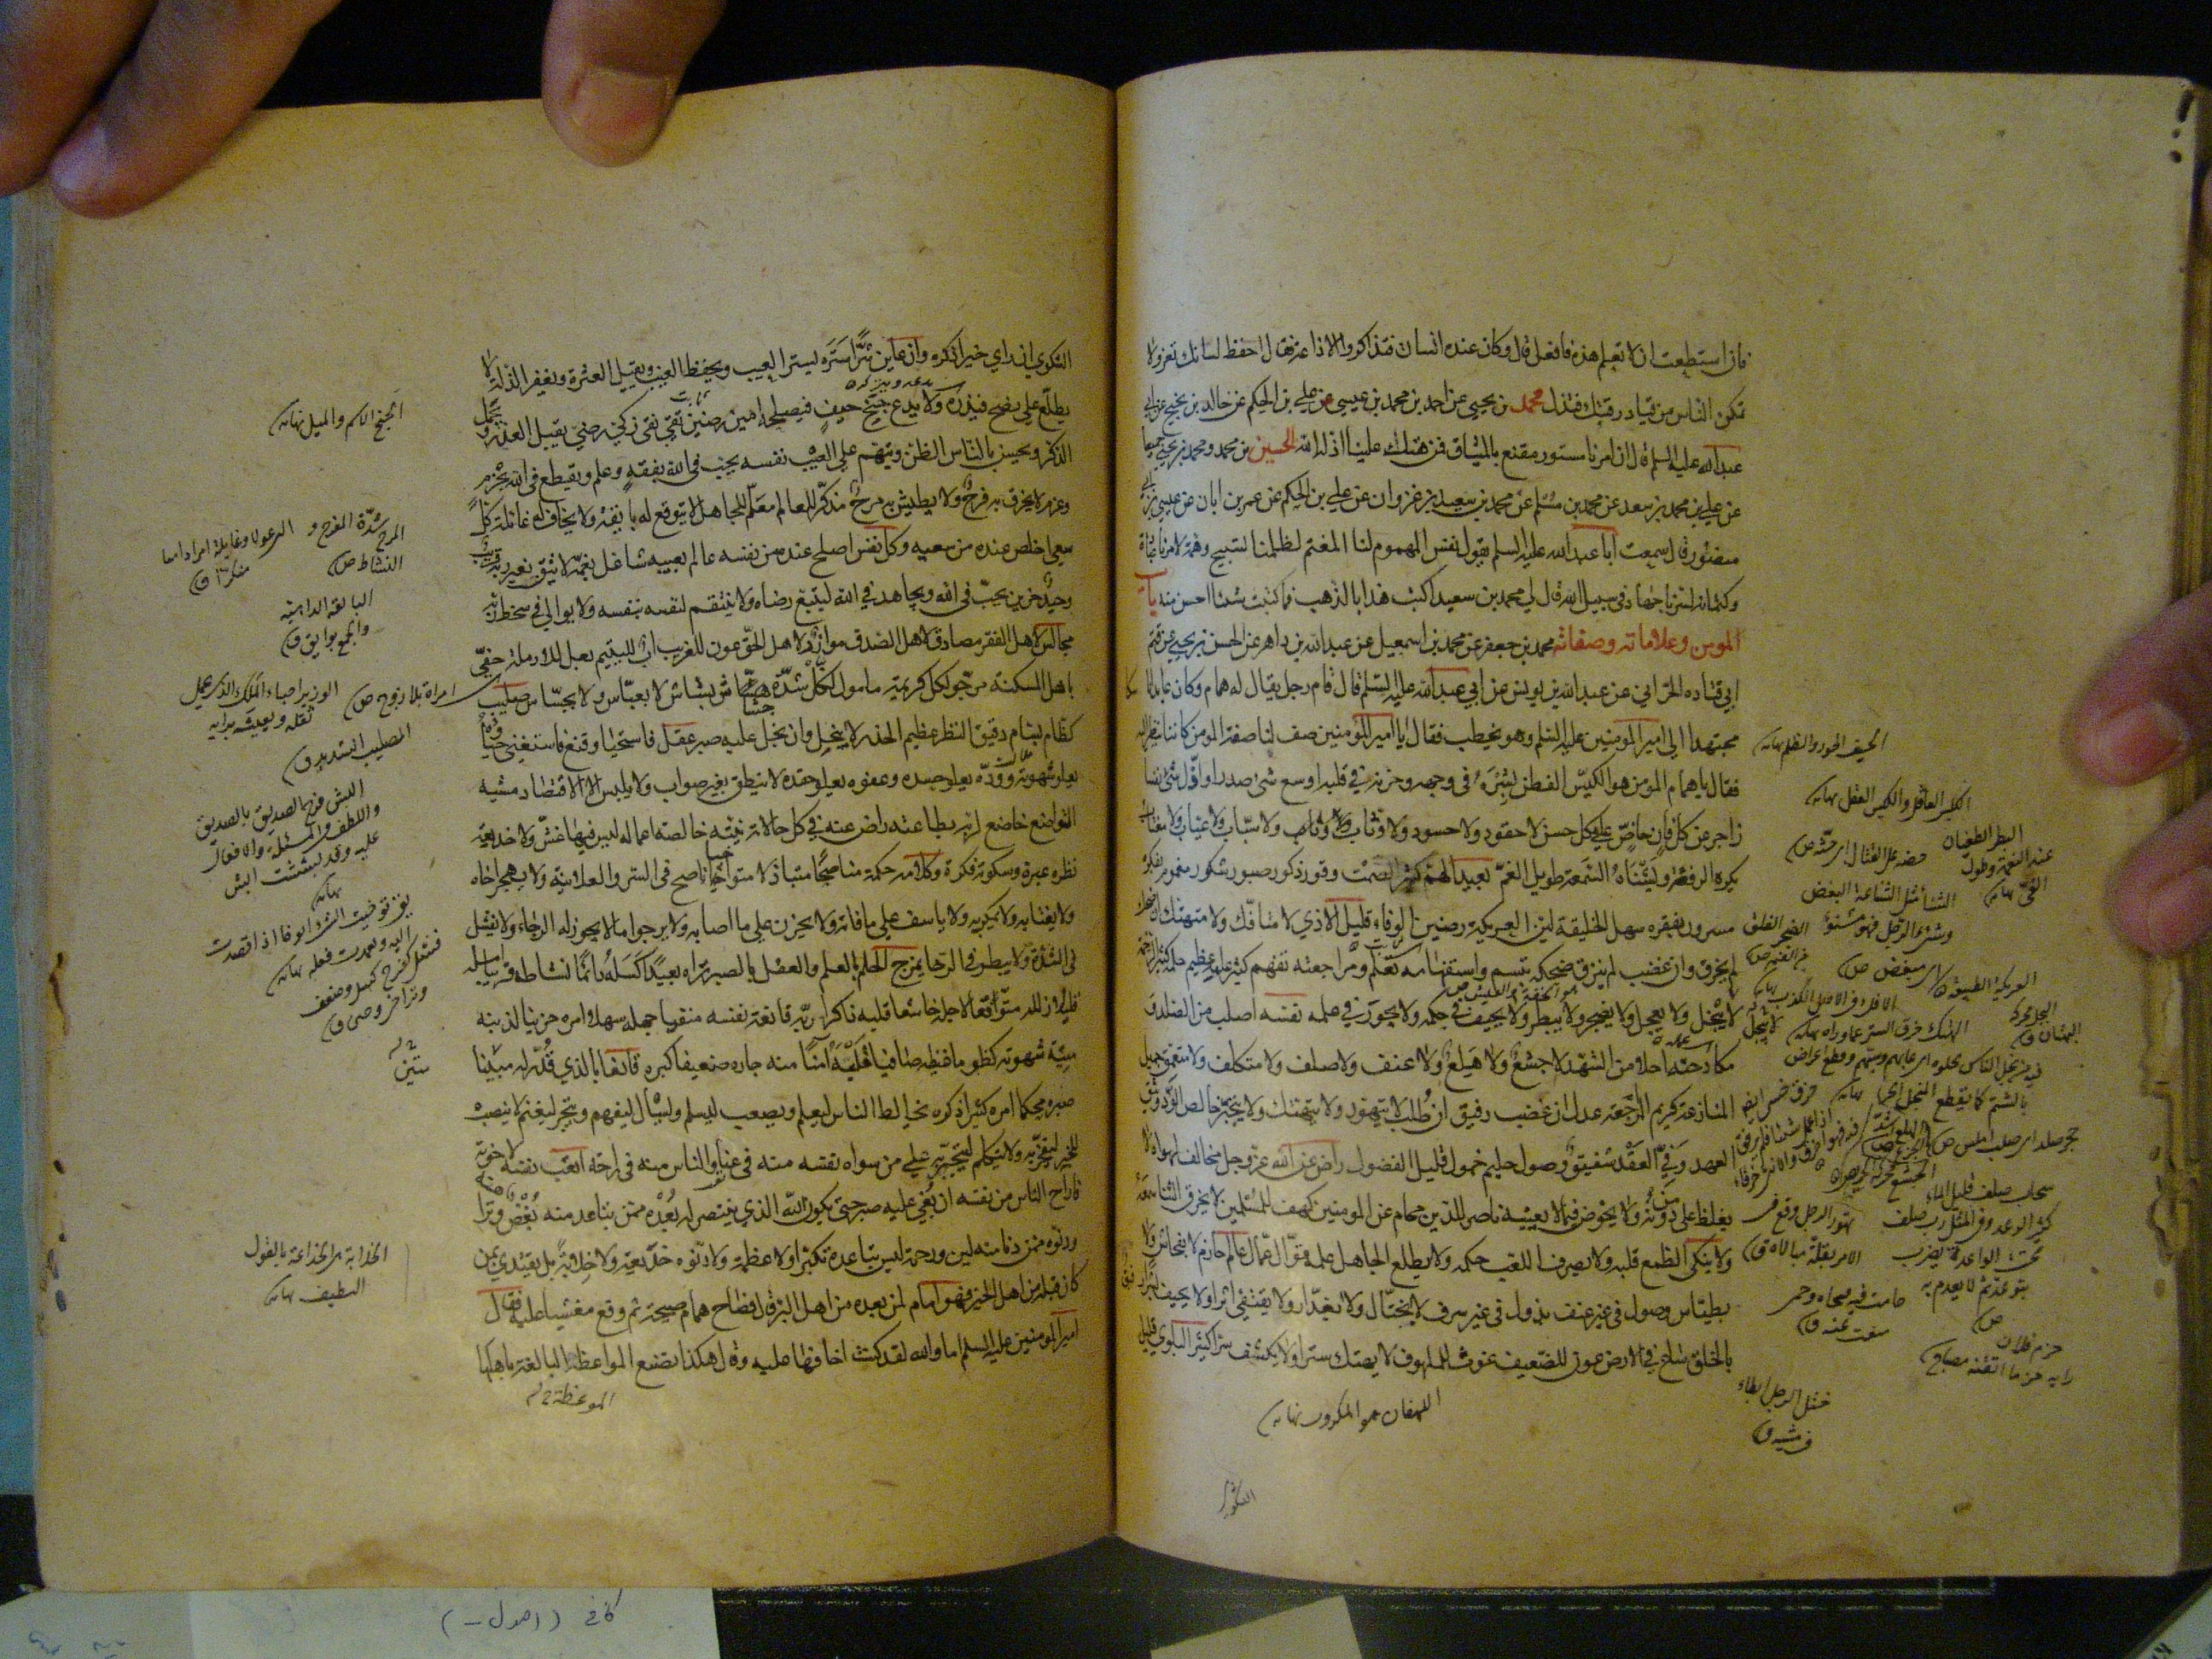 فان استطعت ان لا تعلم هذه فافعل قال وكان عنده انسان فتذاكروا الاذاعة فقال احفظ لسانك تعز ولا
تمكن الناس من قياد رقبتك فتذل محمد بن يحيى عن احمد بن محمد بن عيسى عن علي بن الحكم عن خالد بن نجيح عن ابي
عبد الله عليه السلم قال ان امرنا مستور مقنع بالميثاق فمن هتك علينا اذله الله الحسين بن محمد ومحمد بن يحيى جميعا
عن علي بن محمد بن سعد عن محمد بن مسلم عن محمد بن سعيد بن غزوان عن علي بن الحكم عن عمر بن ابان عن عيسى بن ابي
منصور قال سمعت ابا عبد الله عليه السلم يقول نفس المهموم لنا المغتم لظلمنا تسبيح وهمه لامرنا عبادة
وكتمانه لسرنا جهاد في سبيل الله قال لي محمد بن سعيد اكتب هذا بالذهب فما كتبت شيئا احسن منه باب
المومن وعلاماته وصفاته محمد بن جعفر عن محمد بن اسمعيل عن عبد الله بن داهر عن الحسن بن يحيى عن قثم
ابي قتاده الحراني عن عبد الله بن يونس عن ابي عبد الله عليه السلم قال قام رجل يقال له همام وكان عابدا ناسكا
مجتهدا الى امير المومنين عليه السلم وهو يخطب فقال يا امير المومنين صف لنا صفة المومن كاننا ننظر اليه
فقال يا همام المومن هو الكيس الفطن بشره في وجهه وحزنه في قلبه اوسع شئ صدرا واذل شئ نفسا
زاجر عن كل فان حاض على كل حسن لا حقود ولا حسود ولا وثاب ولا سباب ولا عياب ولا مغتاب
يكره الرفعة ويشنأ السمعة طويل الغم بعيد الهم كثير الصمت وقور ذكور صبور شكور مغموم بفكره
مسرور بفقره سهل الخليقة لين العريكة رصين الوفاء قليل الاذى لا متافك ولا متهتك ان ضحك
لم يخرق وان غضب لم ينزق ضحكه تبسم واستفهامه تعلم ومراجعته تفهم كثير علمه عظيم حلمه كثير الرحمة
لا يبخل ولا يعجل ولا يضجر ولا يبطر ولا يحيف في حكمه ولا يجور في علمه نفسه اصلب من الصلد و
مكادحته احلى من الشهد لا جشع ولا هلع ولا عنف ولا صلف ولا متكلف ولا متعمق جميل
المنازعة كريم المراجعة عدل ان غضب رفيق ان طلب لا يتهور ولا يتهتك ولا يتجبر خالص الود وثيق
العهد وفي العقد شفيق وصول حليم خمول قليل الفضول راض عن الله عز وجل مخالف لهواه لا
يغلظ على من دونه ولا يخوض فيما لا يعنيه ناصر للدين محام عن المومنين كهف للمسلمين لا يخرق الثناء سمعه
ولا ينكى الطمع قلبه ولا يصرف اللعب حكمه ولا يطلع الجاهل علمه قوال عمال عالم حازم لا بفحاش ولا
بطياش وصول في غير عنف بذول في غير سرف لا بختال ولا بغدار ولا يقتفي اثرا ولا يحيف بشرا رفيق
بالخلق ساع في الارض عون للضعيف غوث للملهوف لا يهتك سترا ولا يكشف سرا كثير البلوى قليل
الشكوى
الحيف الجور والظلم نهايه
الكيس العاقل والكيس العقل نهايه
البطر الطغيان
عند النعمة وطول
الغنى نهايه
حضه على القتال اي حثه ص
وشنئ الرجل فهو مشنوء
اي مبغض ص
العريكة الطبيعة
الهتك خرق الستر عما وراه نهايه
حجر صلد اي صلب املس ص
سحاب صلف قليل الماء
كثير الرعد وفي المثل رب صلف
تحت الراعدة يضرب
تهور الرجل وقع في
الامر بقلة مبالاة ق
اللهفان هو المكروب نهايه
الشكوى ان راى خيرا ذكره وان عاين شرا ستره يستر العيب ويحفظ الغيب ويقيل العثرة ويغفر الزلة لا
يطلع على نصح فيذره ولا يدع جنح حيف فيصلحه امين رصين تقي نقي زكي رضي يقبل العذر ويجمل
الذكر ويحسن بالناس الظن ويتهم على العيب نفسه يحب في الله بفقه وعلم ويقطع في الله بحزم
وعزم لا يخرق به فرح ولا يطيش به مرح مذكر للعالم معلم للجاهل لا يتوقع له بائقة ولا يخاف له غائلة كل
سعي اخلص عنده من سعيه وكل نفس اصلح عنده من نفسه عالم بعيبه شاغل بغمه لا يثق بغير ربه غريب
وحيد حزين يحب في الله ويجاهد في الله ليتبع رضاه ولا ينتقم لنفسه بنفسه ولا يوالي في سخط ربه
مجالس لاهل الفقر مصادق لاهل الصدق موازر لاهل الحق عون للغريب اب لليتيم بعل للارملة حفي
باهل المسكنة مرجو لكل كريهة مامول لكل شدة هشاش بشاش لا بعباس ولا بجساس صليب
كظام بسام دقيق النظر عظيم الحذر لا يبخل وان بخل عليه صبر عقل فاستحيا وقنع فاستغنى حياؤه
يعلو شهوته ووده يعلو حسده وعفوه يعلو حقده لا ينطق بغير صواب ولا يلبس الا الاقتصاد مشيه
التواضع خاضع لربه بطاعته راض عنه في كل حالاته نيته خالصة اعماله ليس فيها غش ولا خديعة
نظره عبرة وسكوته فكرة وكلامه حكمة مناصحا متباذلا متواخيا ناصح في السر والعلانية ولا يهجر اخاه
ولا يغتابه ولا يمكر به ولا ياسف على ما فاته ولا يحزن على ما اصابه ولا يرجو ما لا يجوز له الرجاء ولا يفشل
في الشدة ولا يبطر في الرخا يمزج الحلم بالعلم والعقل بالصبر تراه بعيدا كسله دائما نشاطه قريبا امله
قليلا زلله متوقعا لاجله خاشعا قلبه ذاكرا ربه قانعة نفسه منفيا جهله سهلا امره حزينا لذنبه
ميتة شهوته كظوما غيظه صافيا خلقه امنا منه جاره ضعيفا كبره قانعا بالذي قدر له متينا
صبره محكما امره كثيرا ذكره يخالط الناس ليعلم ويصمت ليسلم ويسأل ليفهم ويتجر ليغنم لا ينصت
للخير ليفخر به ولا يتكلم ليتجبر به على من سواه نفسه منه في عناء والناس منه في راحة اتعب نفسه لاخرته
فاراح الناس من نفسه ان بغي عليه صبر حتى يكون الله الذي ينتصر له بعده ممن تباعد منه بغض ونزاهة
ودنوه ممن دنا منه لين ورحمة ليس تباعده تكبرا ولا عظمة ولا دنوه خديعة ولا خلابة بل يقتدي بمن
كان قبله من اهل الخير فهو امام لمن بعده من اهل البر قال فصاح همام صيحة ثم وقع مغشيا عليه فقال
امير المومنين عليه السلم اما والله لقد كنت اخافها عليه وقال هكذا تصنع المواعظ البالغة باهلها
الموعظة خ ل
الجنح الاثم والميل نهايه
المرح شدة الفرح و
النشاط ص
البائقة الداهية
والجمع بوايق ق
امراة بلا زوج ص
المصليب الشديد ق
البش فرح الصديق بالصديق
واللطف في المسئلة والاقبال
عليه وقد بششت ابش
نهايه
فشل كفرح كسل وضعف
وتراخى وجبن ق
متين
الخلابة هي الخداعة بالقول
اللطيف نهايه
كافى (اصول -)